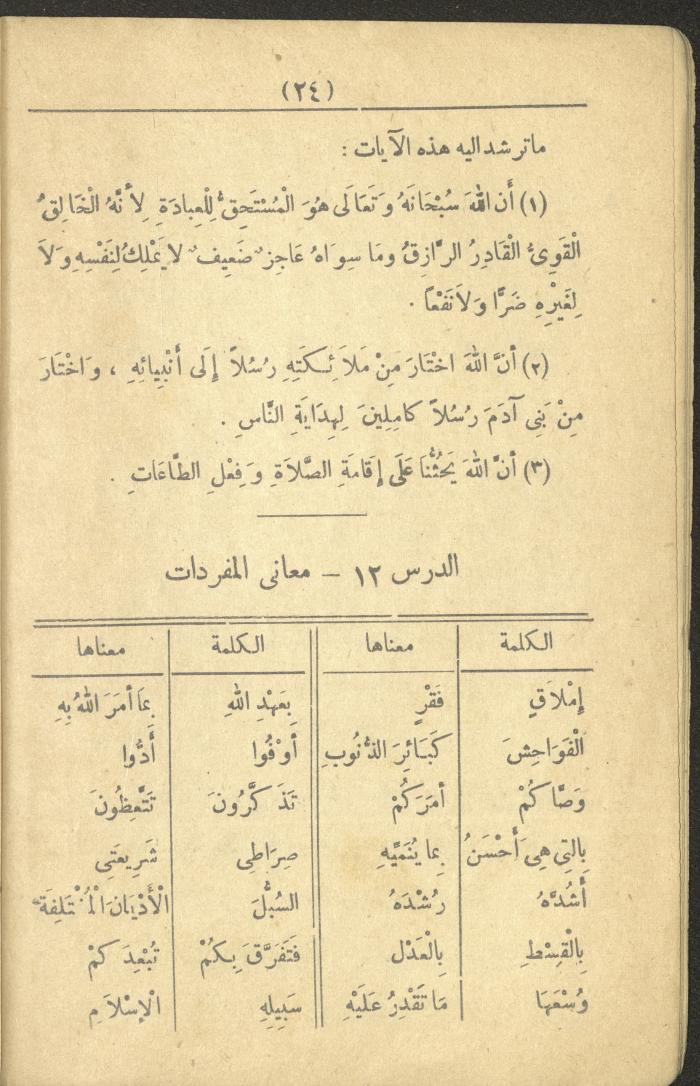 (٢٤)
ماترشداليه هذه الآيات :
(١) أَن اللهَ سُبْحَانَهُ وَتَعَالَى هُوَ الْمُسْتَحِقُّ لِلْعِبادَةِ لِأَنَّهُ الْخَالِقُ
الْقَوِىُّ الْقَادِرُ الرَّازِقُ وَمَا سِوَاهُ عَاجِزٌ ضَعِيفٌ لاَ يَمْلِكُ لِنَفْسِهِ وَلاَ
لِغَيْرِهِ ضَرًّا وَلاَ نَفْعًا .
(٢) أَنَّ اللهَ اخْتَارَ مِنْ مَلاَئِكَتِهِ رُسُلاً إِلَى أَنْبِيائِهِ ، وَاخْتَارَ
مِنْ بَنِى آدَمَ رُسُلاً كَامِلِينَ لِهِدَايَةِ النَّاسِ .
(٣) أَنَّ اللهَ يَحُثُّنَا عَلَى إِقَامَةِ الصَّلاَةِ وَفِعْلِ الطَّاعَاتِ .
الدرس ١٢ – معانى المفردات
الكلمة معناها الكلمة معناها
إِمْلاَقٍ فَقْرٍ بِعَهْدِ اللهِ بِمَا أَمَرَ اللهُ بِهِ
الْفَوَاحِشَ كَبَائِرَ الذُّنُوبِ أَوْفُوا أَدُّوا
وَصَّاكُمْ أَمَرَكُمْ تَذَكَّرُونَ تَتَّعِظُونَ
بِالتِى هِىَ أَحْسَنُ بِما يُنَمِّيهِ صِرَاطِى شَرِيعَتِى
أَشُدَّهُ رُشْدَهُ السُّبُلَ الْأَدْيَانَ الْمُخْتَلِفَةَ
بِالْقِسْطِ بِالْعَدْلِ فَتَفَرَّقَ بِكُمْ تُبْعِدَكُمْ
وُسْعَهَا مَا تَقْدِرُ عَلَيْهِ سَبِيلِهِ الْإِسْلاَمِ